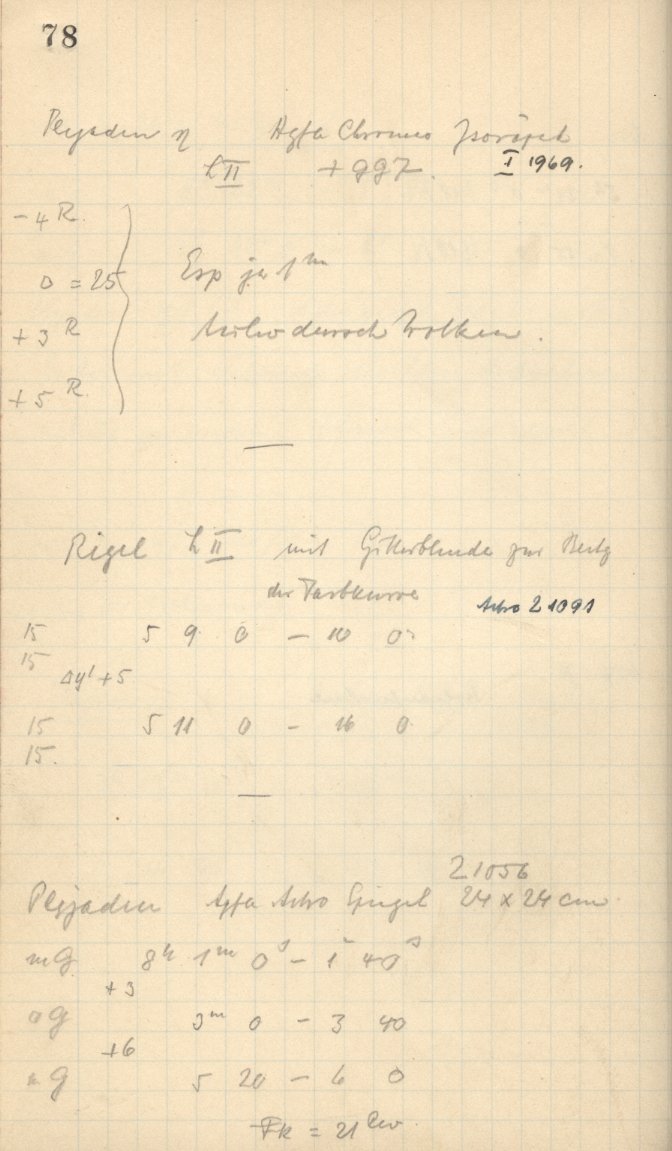 78
Plejaden η Agfa Chromo Isorapid
L II + 997. I 1969.
- 4 R.
0 = 25 Exp je 1 m
+ 3 R durch Wolken.
+ 5 R.
Rigel L II mit Gitterblende zur
der Farbkurve Astro 21091
15 5 9 0 - 10 0
15
Δy' + 5
15 5 11 0 - 16 0
15.
21056
Plejaden Agfa Astro Spiegel 24 x 24 cm
mG 8h 1m 0s - 1 40s
+ 3
oG 3m 0 - 3 40
+ 6
G 5 20 - 6 0
Fk = 21